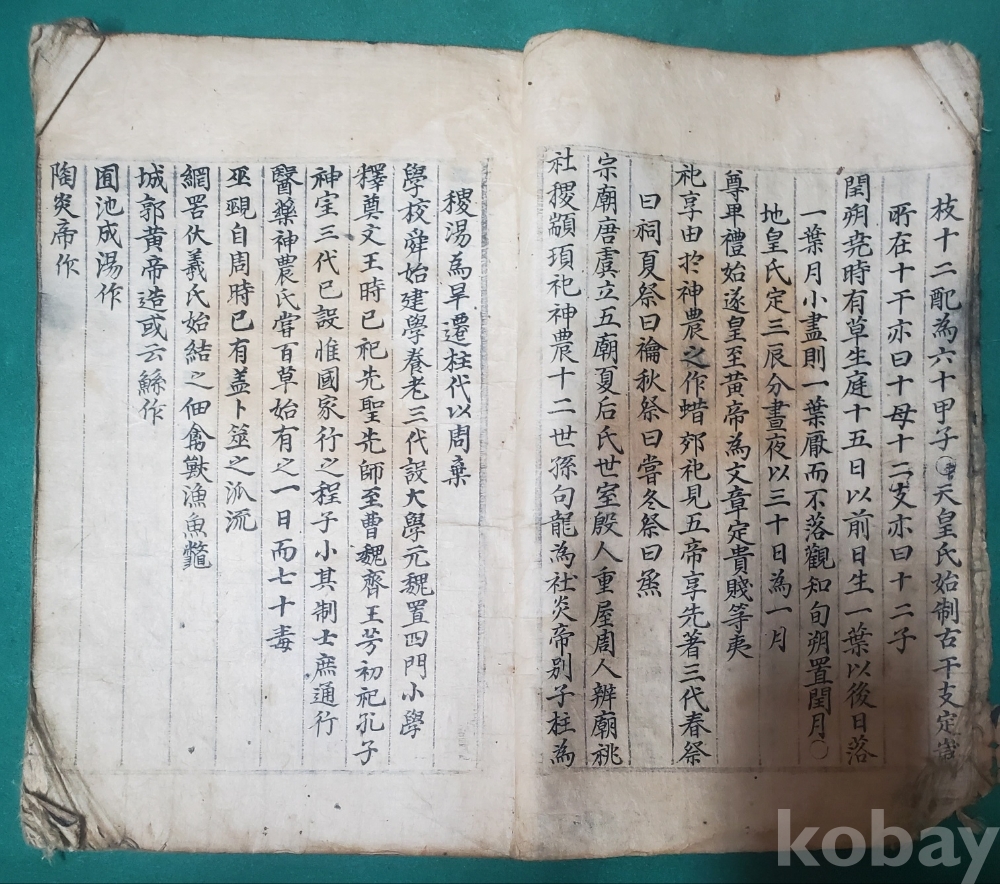 枝十二配為六十甲子天皇氏始制古干支定歲
所在十干亦曰十母十二支亦曰十二子
閏朔堯時有草生庭十五日以前日生一葉以後日落
一葉月小盡則一葉厭而不落觀知旬朔置閏月〇
地皇氏定三辰分晝夜以三十日為一月
尊卑禮始遂皇至黃帝為文章定貴賤等夷
祀享由於神農之作蜡郊祀見五帝享先著三代春祭
曰祠夏祭曰禴秋祭曰嘗冬祭曰烝
宗廟唐虞立五廟夏后氏世室殷人重屋周人辨廟祧
社稷顓頊祀神農十二世孫句龍為社炎帝别子柱為
稷湯為旱遷柱代以周棄
學校舜始建學養老三代設大學元魏置四門小學
釋奠文王時已祀先聖先師至曹魏齊王芳初祀孔子
神室三代已設惟國家行之程子小其制士庶通行
醫藥神農氏嘗百草始有之一日而七十毒
巫覡自周時已有盖卜筮之派流
網罟伏羲氏始結之佃禽獸漁魚鼈
城郭黃帝造或云鯀作
囿池成湯作
陶炎帝作
kobay